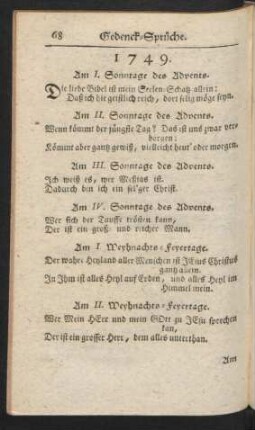 68 Gedenck-Sprüche.
1749.
Am I. Sonntage des Advents.
Die liebe Bibel ist mein Seelen-Schatz allein:
Daß ich hie geistlich reich, dort selig möge seyn.
Am II. Sonntage des Advents.
Wenn kömmt der jüngste Tag? Das ist uns zwar ver-
borgen:
Kömmt aber gantz gewiß, vielleicht heut' oder morgen.
Am III. Sonntage des Advents.
Ich weiß es, wer Meßias ist.
Dadurch bin ich ein sel'ger Christ.
Am IV. Sonntage des Advents.
Wer sich der Tauffe trösten kann,
Der ist ein groß- und reicher Mann.
Am I Weyhnachts-Feyertage.
Der wahre Heyland aller Menschen ist JEsus Christus
gantz allein.
In Jhm ist alles Heyl auf Erden, und alles Heyl im
Himmel mein.
Am II. Weyhnachts-Feyertage.
Wer Mein HErr und mein GOtt zu JEsu sprechen
kan,
Der ist ein grosser Herr, dem alles unterthan.
Am